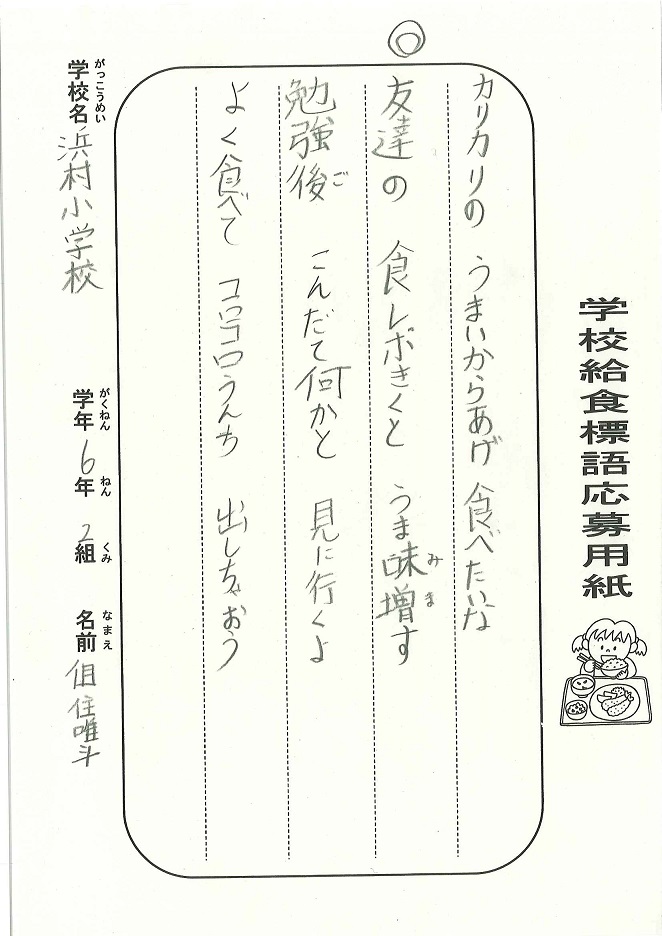 学校給食標語応募用紙
カリカリの うまいからあげ 食べたいな
◎
友達の 食レポきくと うま味増す
みま
勉強後 こんだて何かと 見に行くよ
ご
よく食べて コロコロうんち 出しちゃおう
がっこうめい
学校名 浜村小学校
がくねん ねん くみ
学年 6年 2組
なまえ
名前 但住唯斗